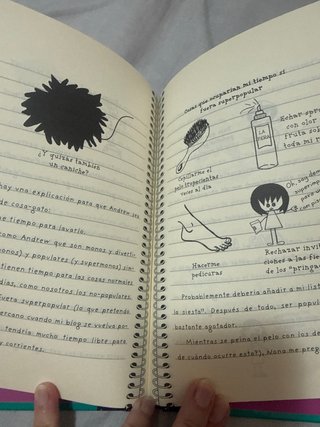 ¿Y quizás también
un caniche?
hay una explicación para que Andrew sea
de cosa-gato:
ne tiempo para lavarlo.
como Andrew que son monos y diverti-
monos) y populares (y supermonos) sim-
tienen tiempo para las cosas normales
días, como nosotros los no-populares.
fuera superpopular (lo que pretendo
cercano cuando mi blog se vuelva po-
tendría mucho tiempo libre para
y corrientes.
Cosas que ocuparían mi tiempo si
fuera superpopular
Cepillarme el
pelo trepecientas
veces al día
LA
PERA
Echar spra
con olor
fruta sob
toda mi r
Hacerme
pedicuras
Oh, soy dem
superimp
para
compin
Rechazar invit
ciones a las fie
de los "pringa
Probablemente debería añadir a mi list
la siesta". Después de todo, ser popula
bastante agotador.
Mientras se peina el pelo con los de
de cuándo ocurre esto?), Nona me preg